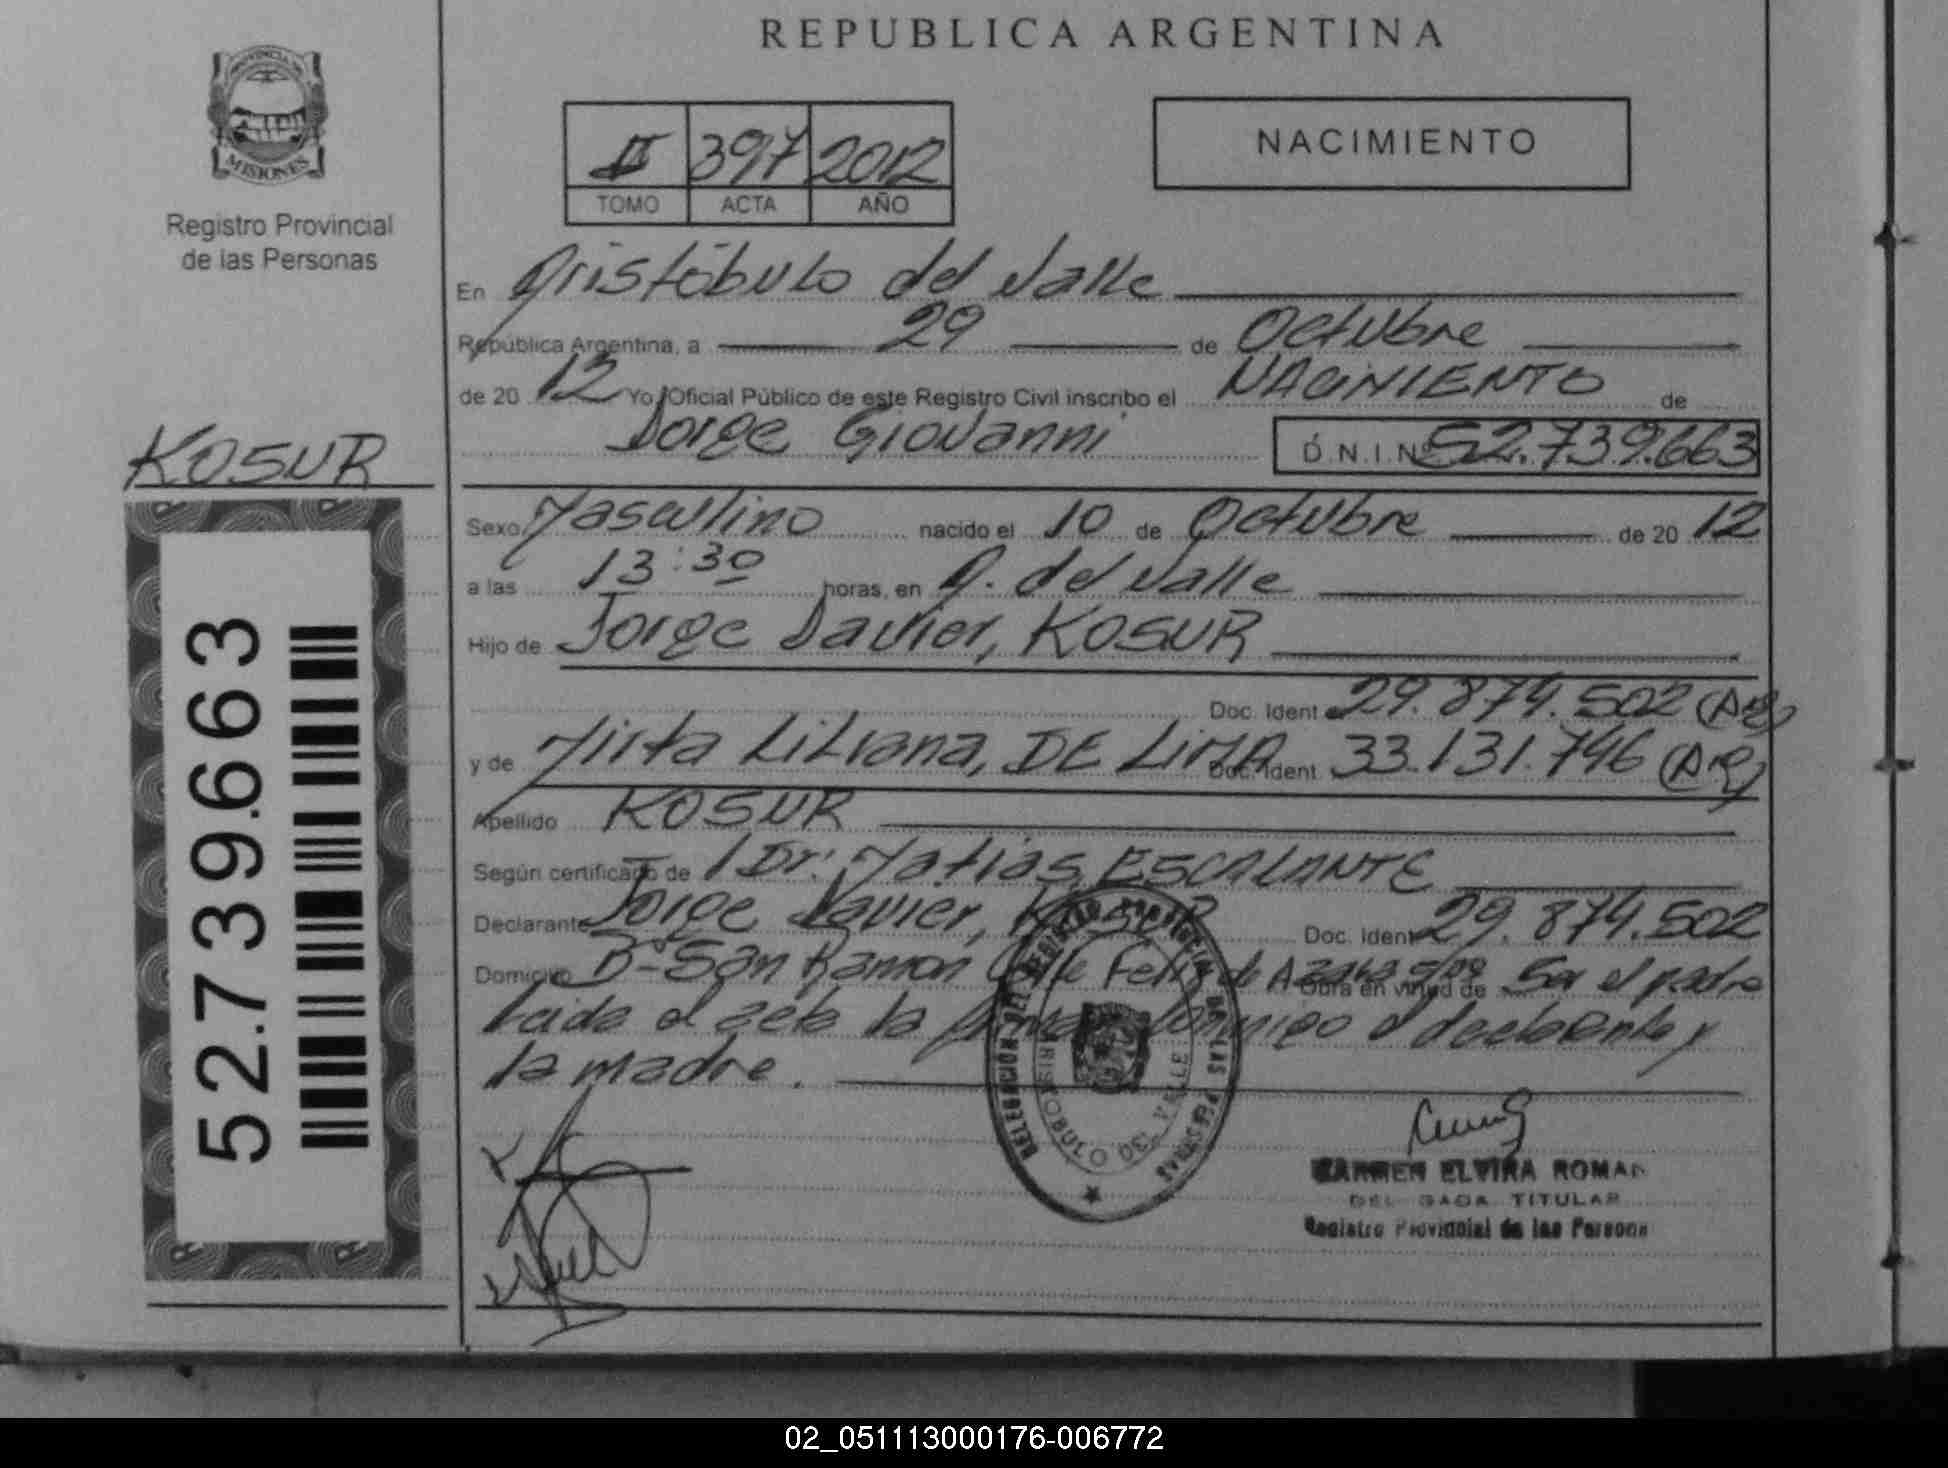 REPUBLICA ARGENTINA
PROVINCIA DE
MISIONES
Registro Provincial
de las Personas
II 397 2012
TOMO ACTA AÑO
NACIMIENTO
En Aristóbulo del Valle
República Argentina, a 29 de Octubre
de 20 12 Yo, Oficial Público de este Registro Civil inscribo el NACIMIENTO de
Jorge Giovanni D.N.I. Nº 52.739.663
KOSUR
52.739.663
Sexo Masculino nacido el 10 de Octubre de 20 12
a las 13:30 horas, en A. del Valle
Hijo de Jorge Javier, KOSUR
Doc. Ident 29.874.502 (AR)
y de Mirta Liliana, DE LIMA Doc. Ident. 33.131.746 (AR)
Apellido KOSUR
Según certificado de 1 Dr: Matías, ESCALANTE
Declarante Jorge Javier, KOSUR Doc. Ident 29.874.502
Domicilio Bº San Ramon Calle Felix de Azara s/nº Obra en virtud de Ser el padre
Leida el acta la firma conmigo el declarante y
la madre.
DELEGACION DEL REGISTRO PROVINCIAL DE LAS PERSONAS
ARISTOBULO DEL VALLE
CARMEN ELVIRA ROMAN
DELEGADA TITULAR
Registro Provincial de las Persona
02_051113000176-006772